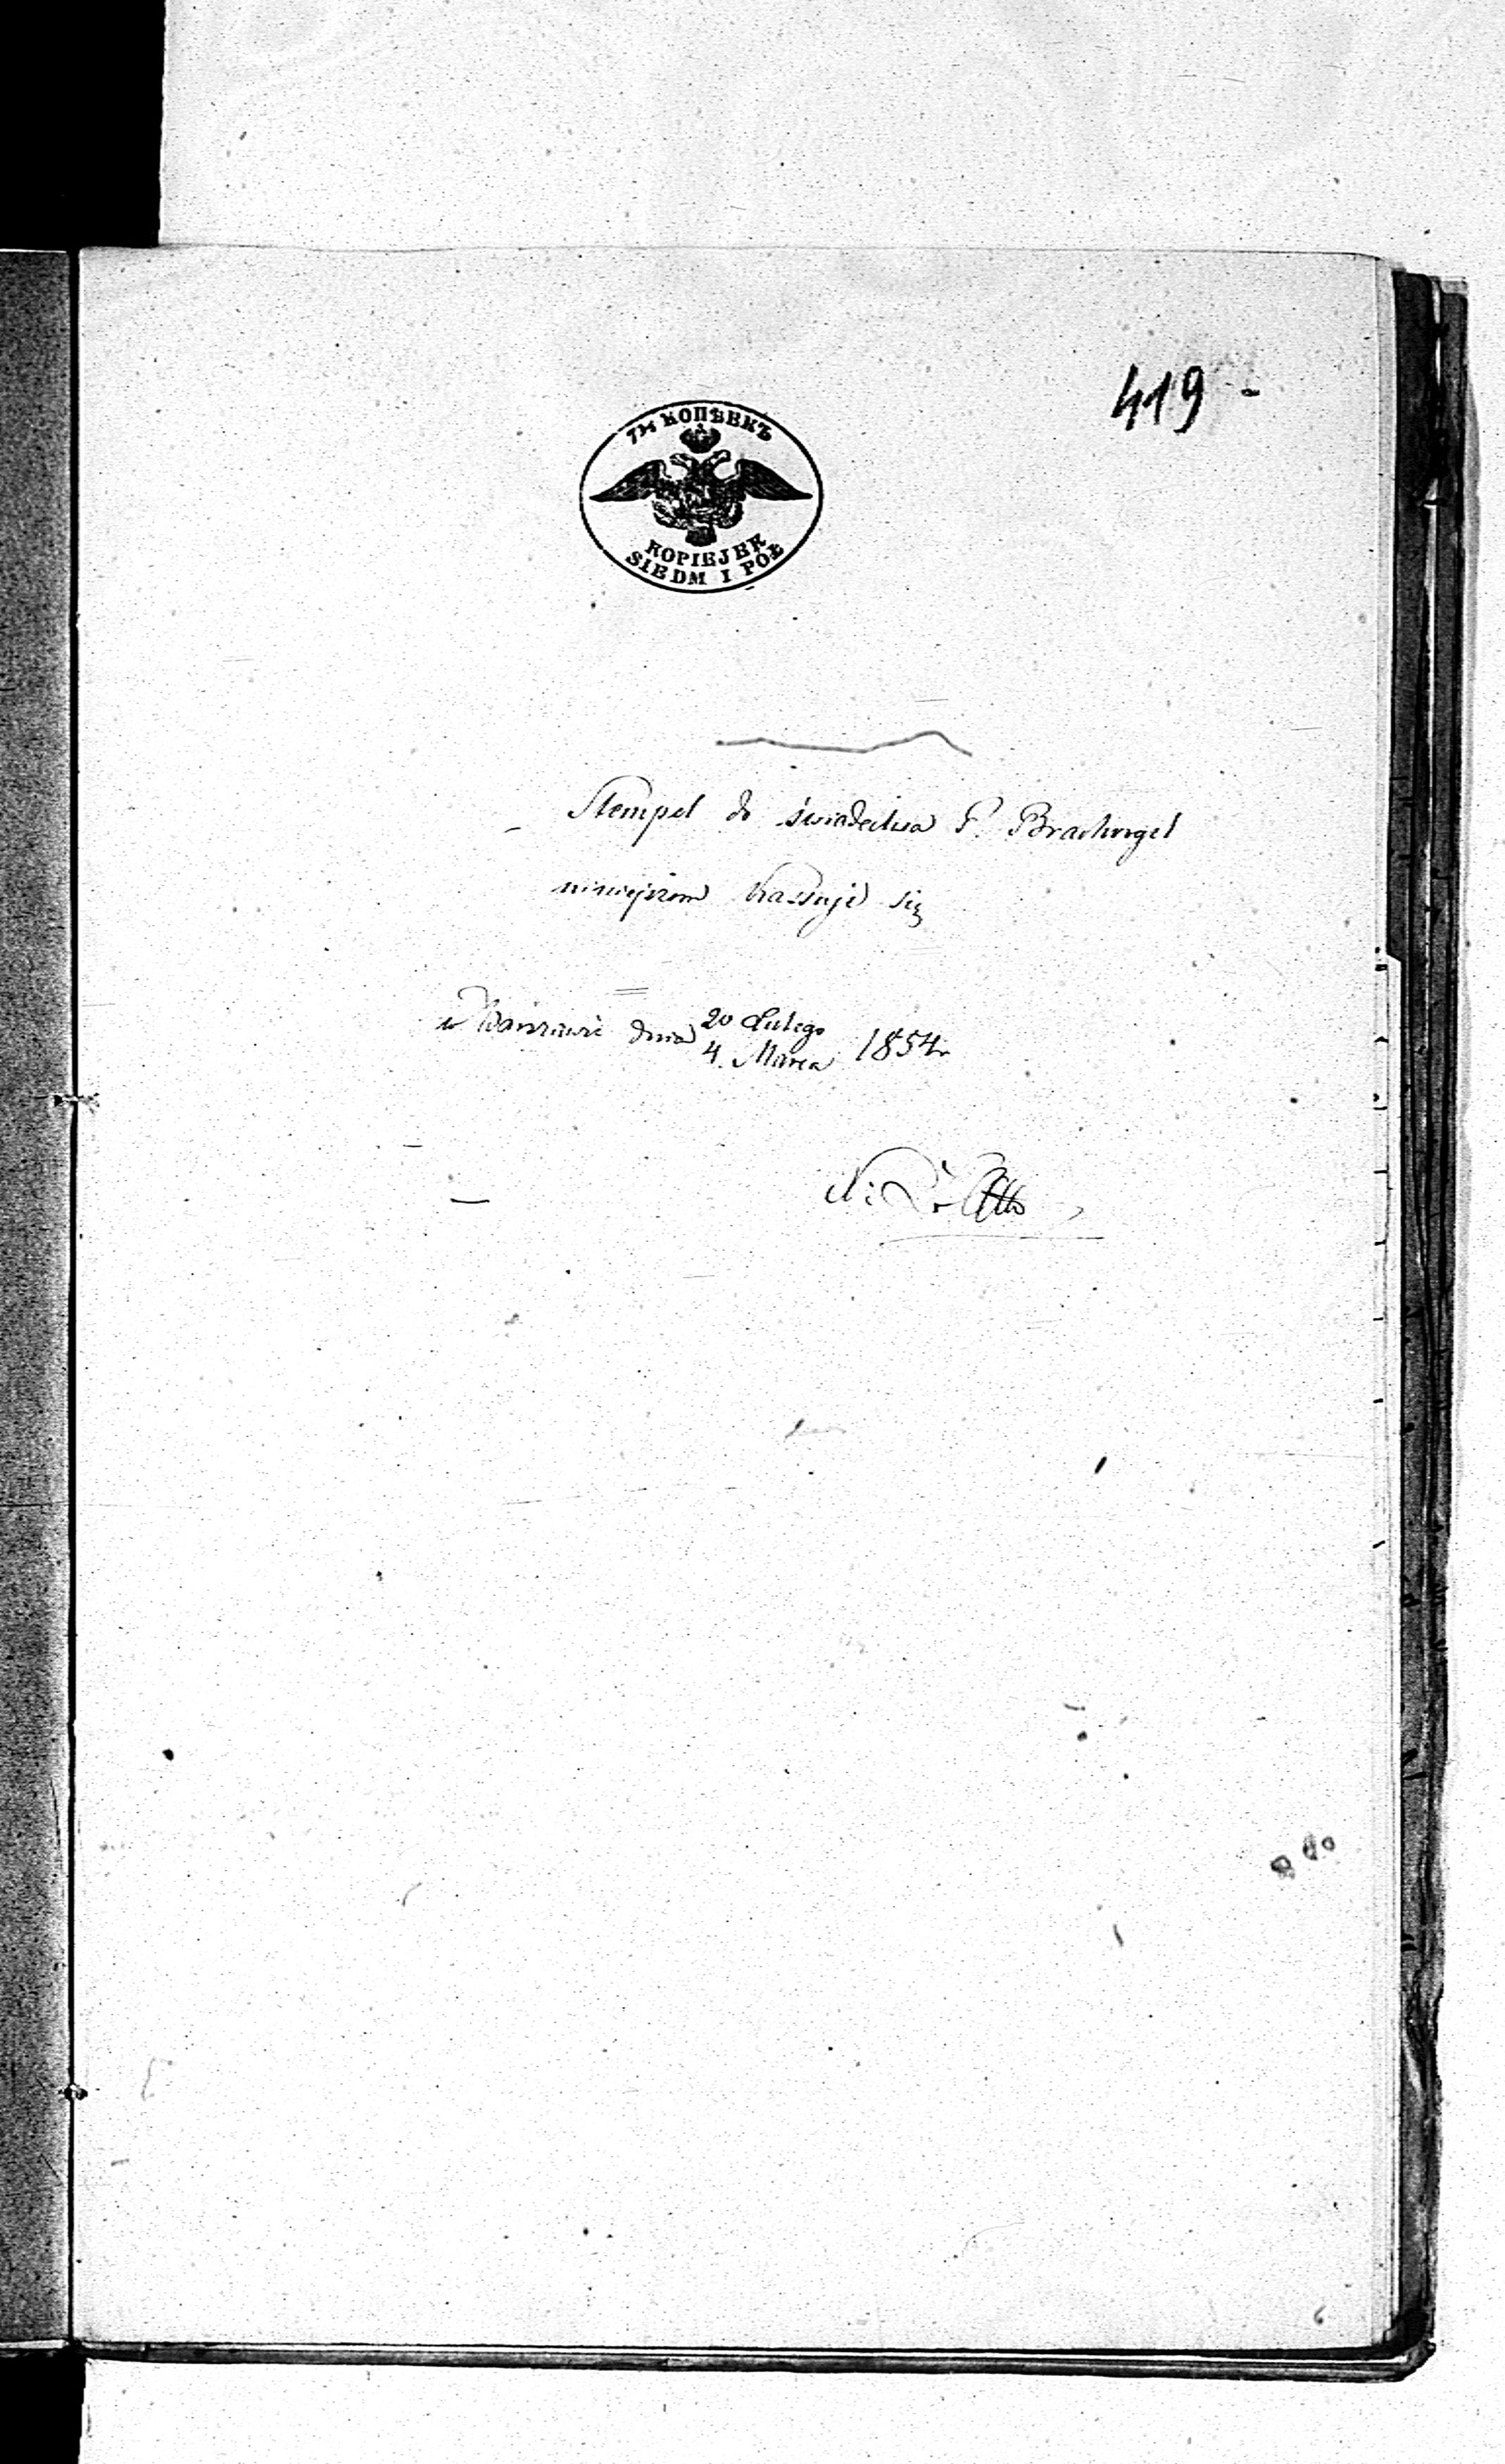 419 -
7½ КОПѢЕКЪ
KOPIEJEK
SIEDM I PÓŁ
Stempel do świadectwa P. Brachvogel
niniejszem kassuje się
w Warszawie dnia 20 Lutego
4. Marca 1854 r